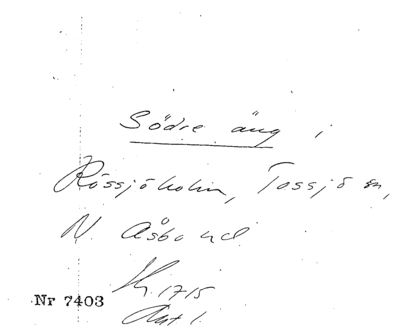 Södre äng i
Rössjöholm, Tossjö sn,
N. Åsbo hd.
K. 1715
Akt 1.
Nr 7403